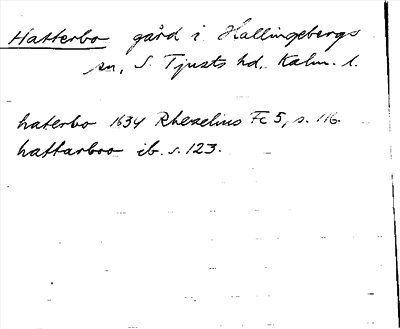 Hatterbo gård i Hallingebergs
sn, S. Tjusts hd, Kalm. l.
haterbo 1634 Rhezelius Fc 5, s. 116.
hattarboo ib. s. 123.